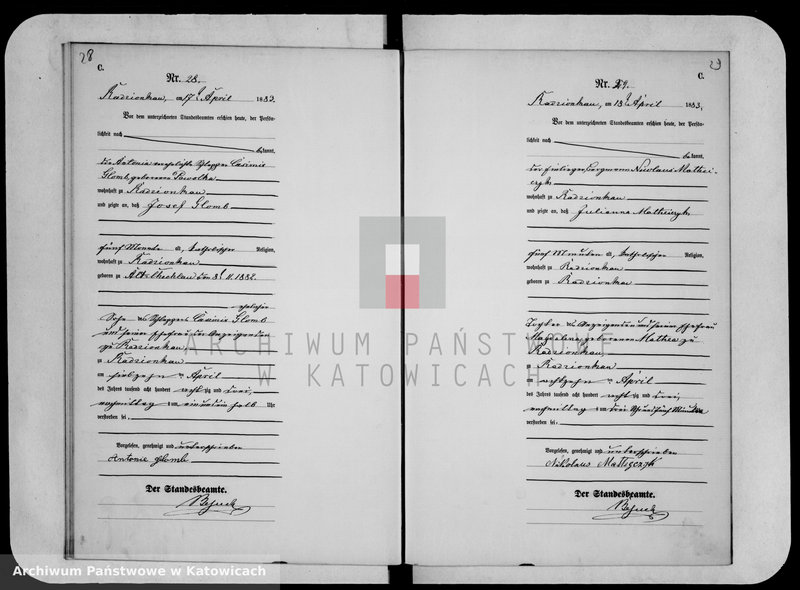 28
C.
Nr. 28.
Radzionkau, am 17. April 1883.
Vor dem unterzeichneten Standesbeamten erschien heute, der Persön-
lichkeit nach
bekannt,
die Antonie verehelichte Schlepper Casimir
Glomb, geborene Pawolka
wohnhaft zu Radzionkau
und zeigte an, daß Josef Glomb
fünf Monate alt, katholischer Religion,
wohnhaft zu Radzionkau
geboren zu Alt Chechlau den 8. 11. 1882.
ehelicher
Sohn des Schleppers Casimir Glomb
und seiner Ehefrau der Anzeigenden
zu Radzionkau
zu Radzionkau
am siebzehn ten April
des Jahres tausend acht hundert achtzig und drei,
Vormittag um ein halb Uhr
verstorben sei.
Vorgelesen, genehmigt und unterschrieben
Antonie Glomb
Der Standesbeamte.
29
C.
Nr. 29.
Radzionkau, am 18. April 1883.
Vor dem unterzeichneten Standesbeamten erschien heute, der Persön-
lichkeit nach
bekannt,
der Einlieger Bergmann Nicolaus Mathei-
czyk
wohnhaft zu Radzionkau
und zeigte an, daß Julianna Matheiczyk
fünf Minuten alt, katholischer Religion,
wohnhaft zu Radzionkau
geboren zu Radzionkau
Tochter des Anzeigenden und seiner Ehefrau
Magdalena, geborenen Matheja zu
Radzionkau
zu Radzionkau
am achtzehn ten April
des Jahres tausend acht hundert achtzig und drei,
Vormittag um drei Uhr fünf Minuten
verstorben sei.
Vorgelesen, genehmigt und unterschrieben
Nikolaus Matheiczyk
Der Standesbeamte.
ARCHIWUM PAŃSTWOWE
W KATOWICACH
Archiwum Państwowe w Katowicach